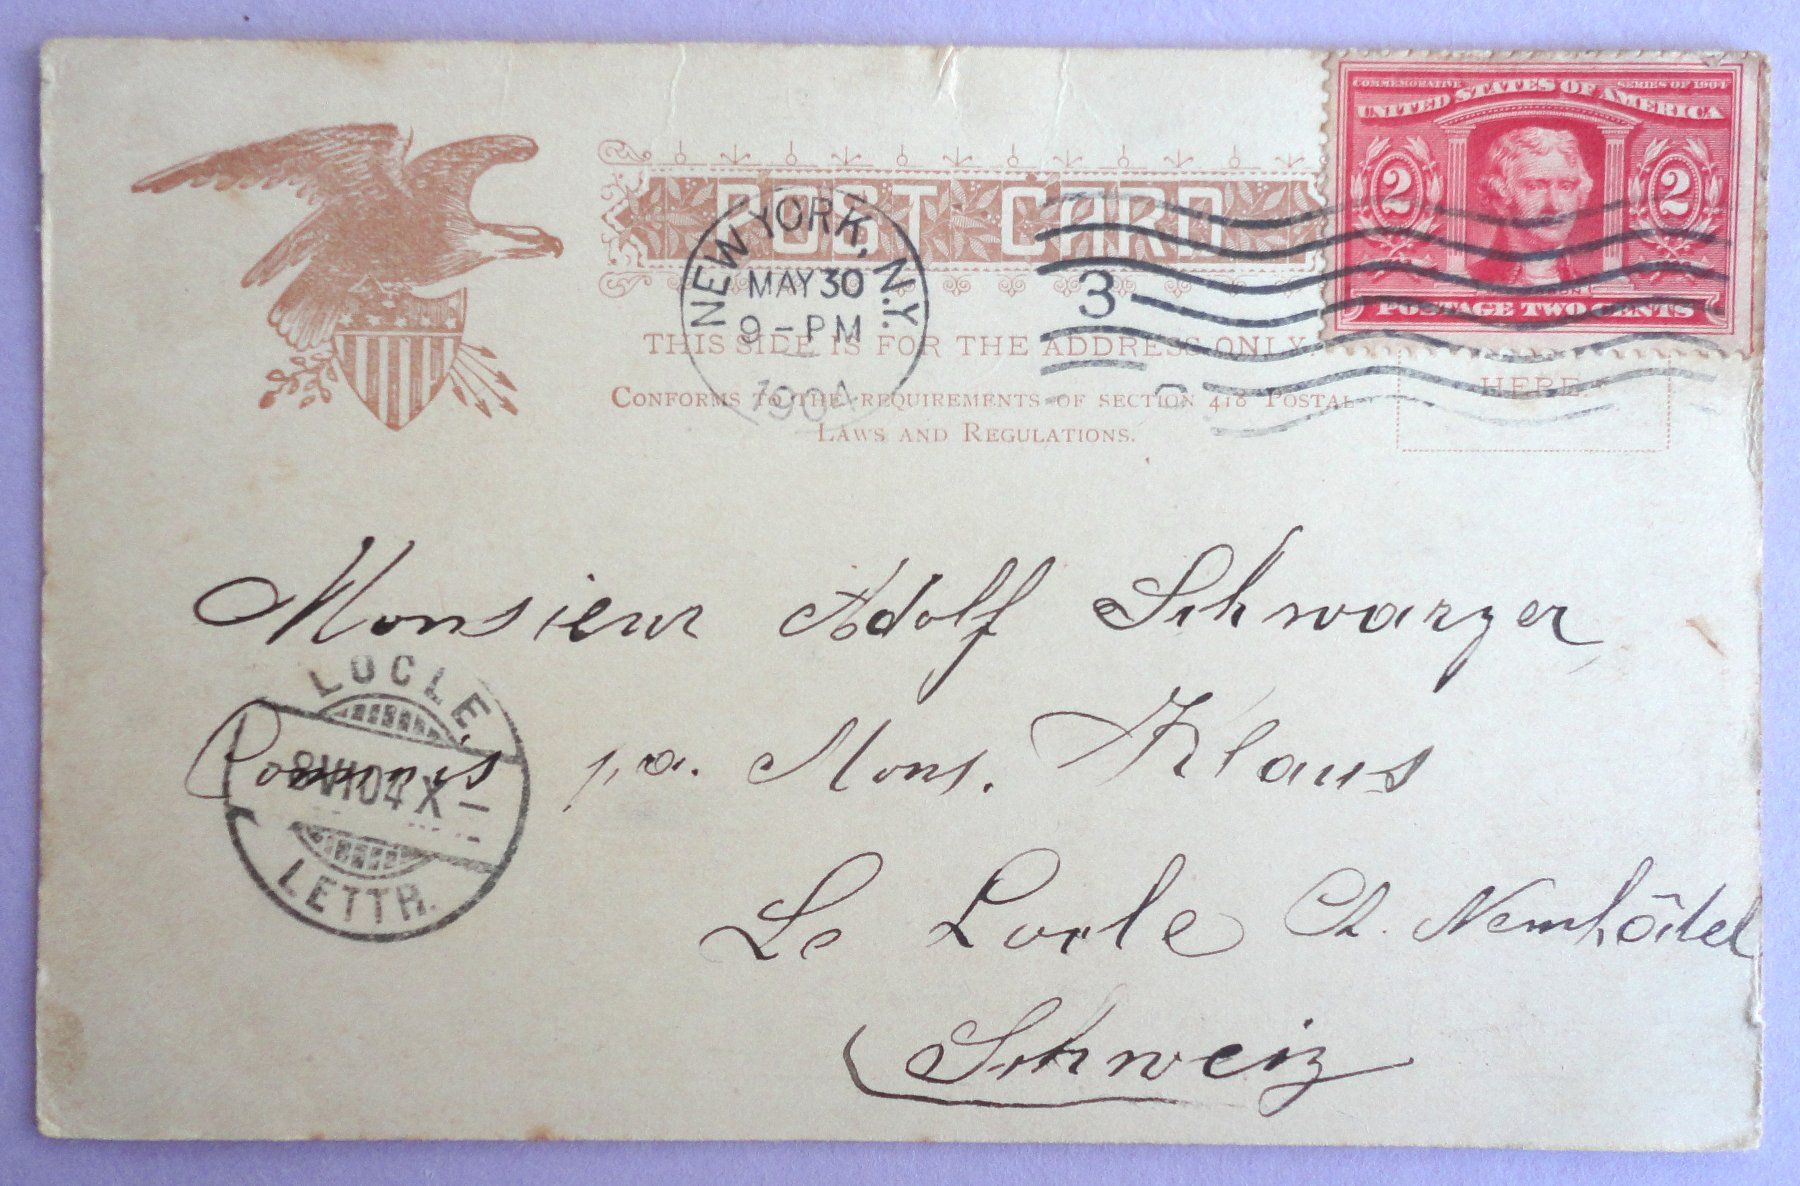 COMMEMORATIVE SERIES OF 1904
UNITED STATES OF AMERICA
2 2
POSTAGE TWO CENTS
POST CARD
NEW YORK, N.Y.
MAY 30
9-PM
1904
3
THIS SIDE IS FOR THE ADDRESS ONLY.
HERE.
CONFORMS TO THE REQUIREMENTS OF SECTION 418 POSTAL
LAWS AND REGULATIONS.
Monsieur Adolf Schwarzer
Commis p.a. Mons. Klaus
Le Locle Ct. Neuchâtel
Schweiz
LOCLE
8 VI 04 X –
LETTR.